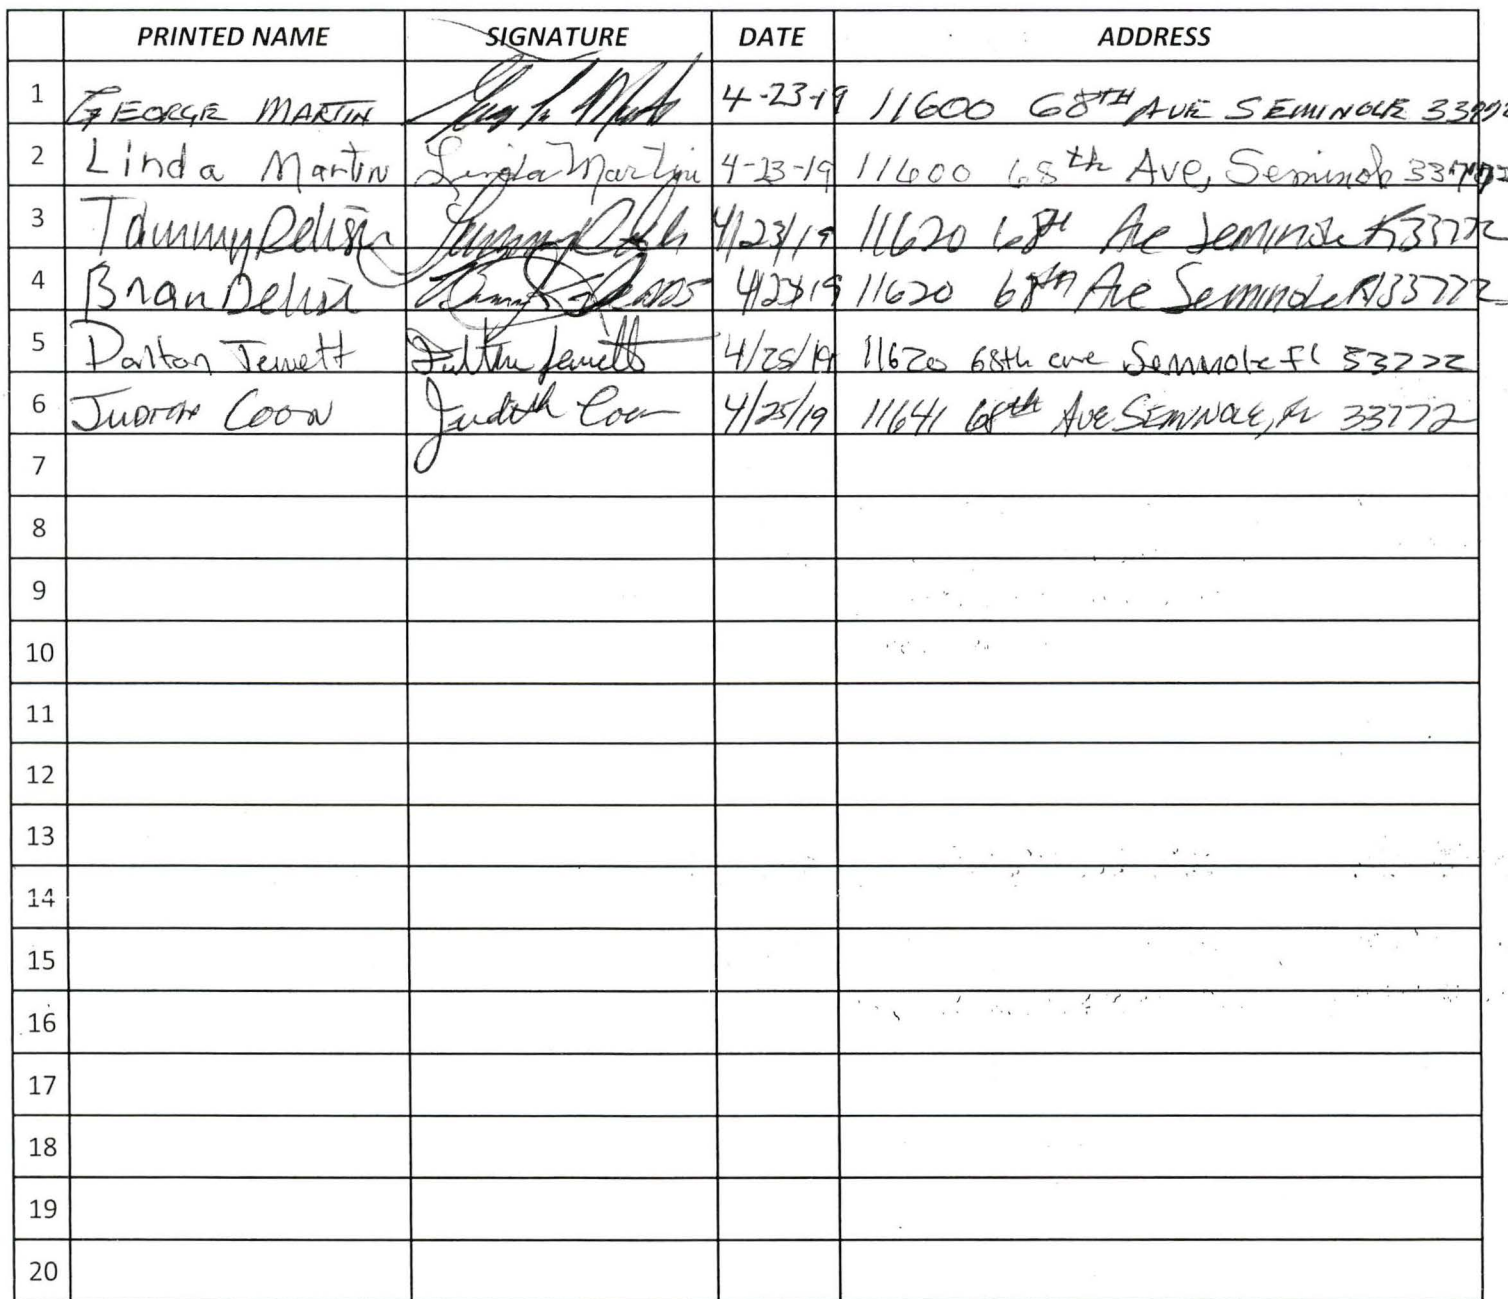 PRINTED NAME SIGNATURE DATE ADDRESS
1 GEORGE MARTIN 4-23-19 11600 68TH AVE SEMINOLE 33772
2 Linda Martin Linda Martin 4-23-19 11600 68th Ave, Seminole 33772
3 Tammy Delisi 4/23/19 11620 68th Ave Seminole Fl 33772
4 Brian Delisi 4/23/19 11620 68th Ave Seminole Fl 33772
5 Dalton Jewett Dalton Jewett 4/25/19 11620 68th ave Seminole Fl 33772
6 JUDITH COON Judith Coon 4/25/19 11641 68th AVE SEMINOLE, FL 33772
7
8
9
10
11
12
13
14
15
16
17
18
19
20